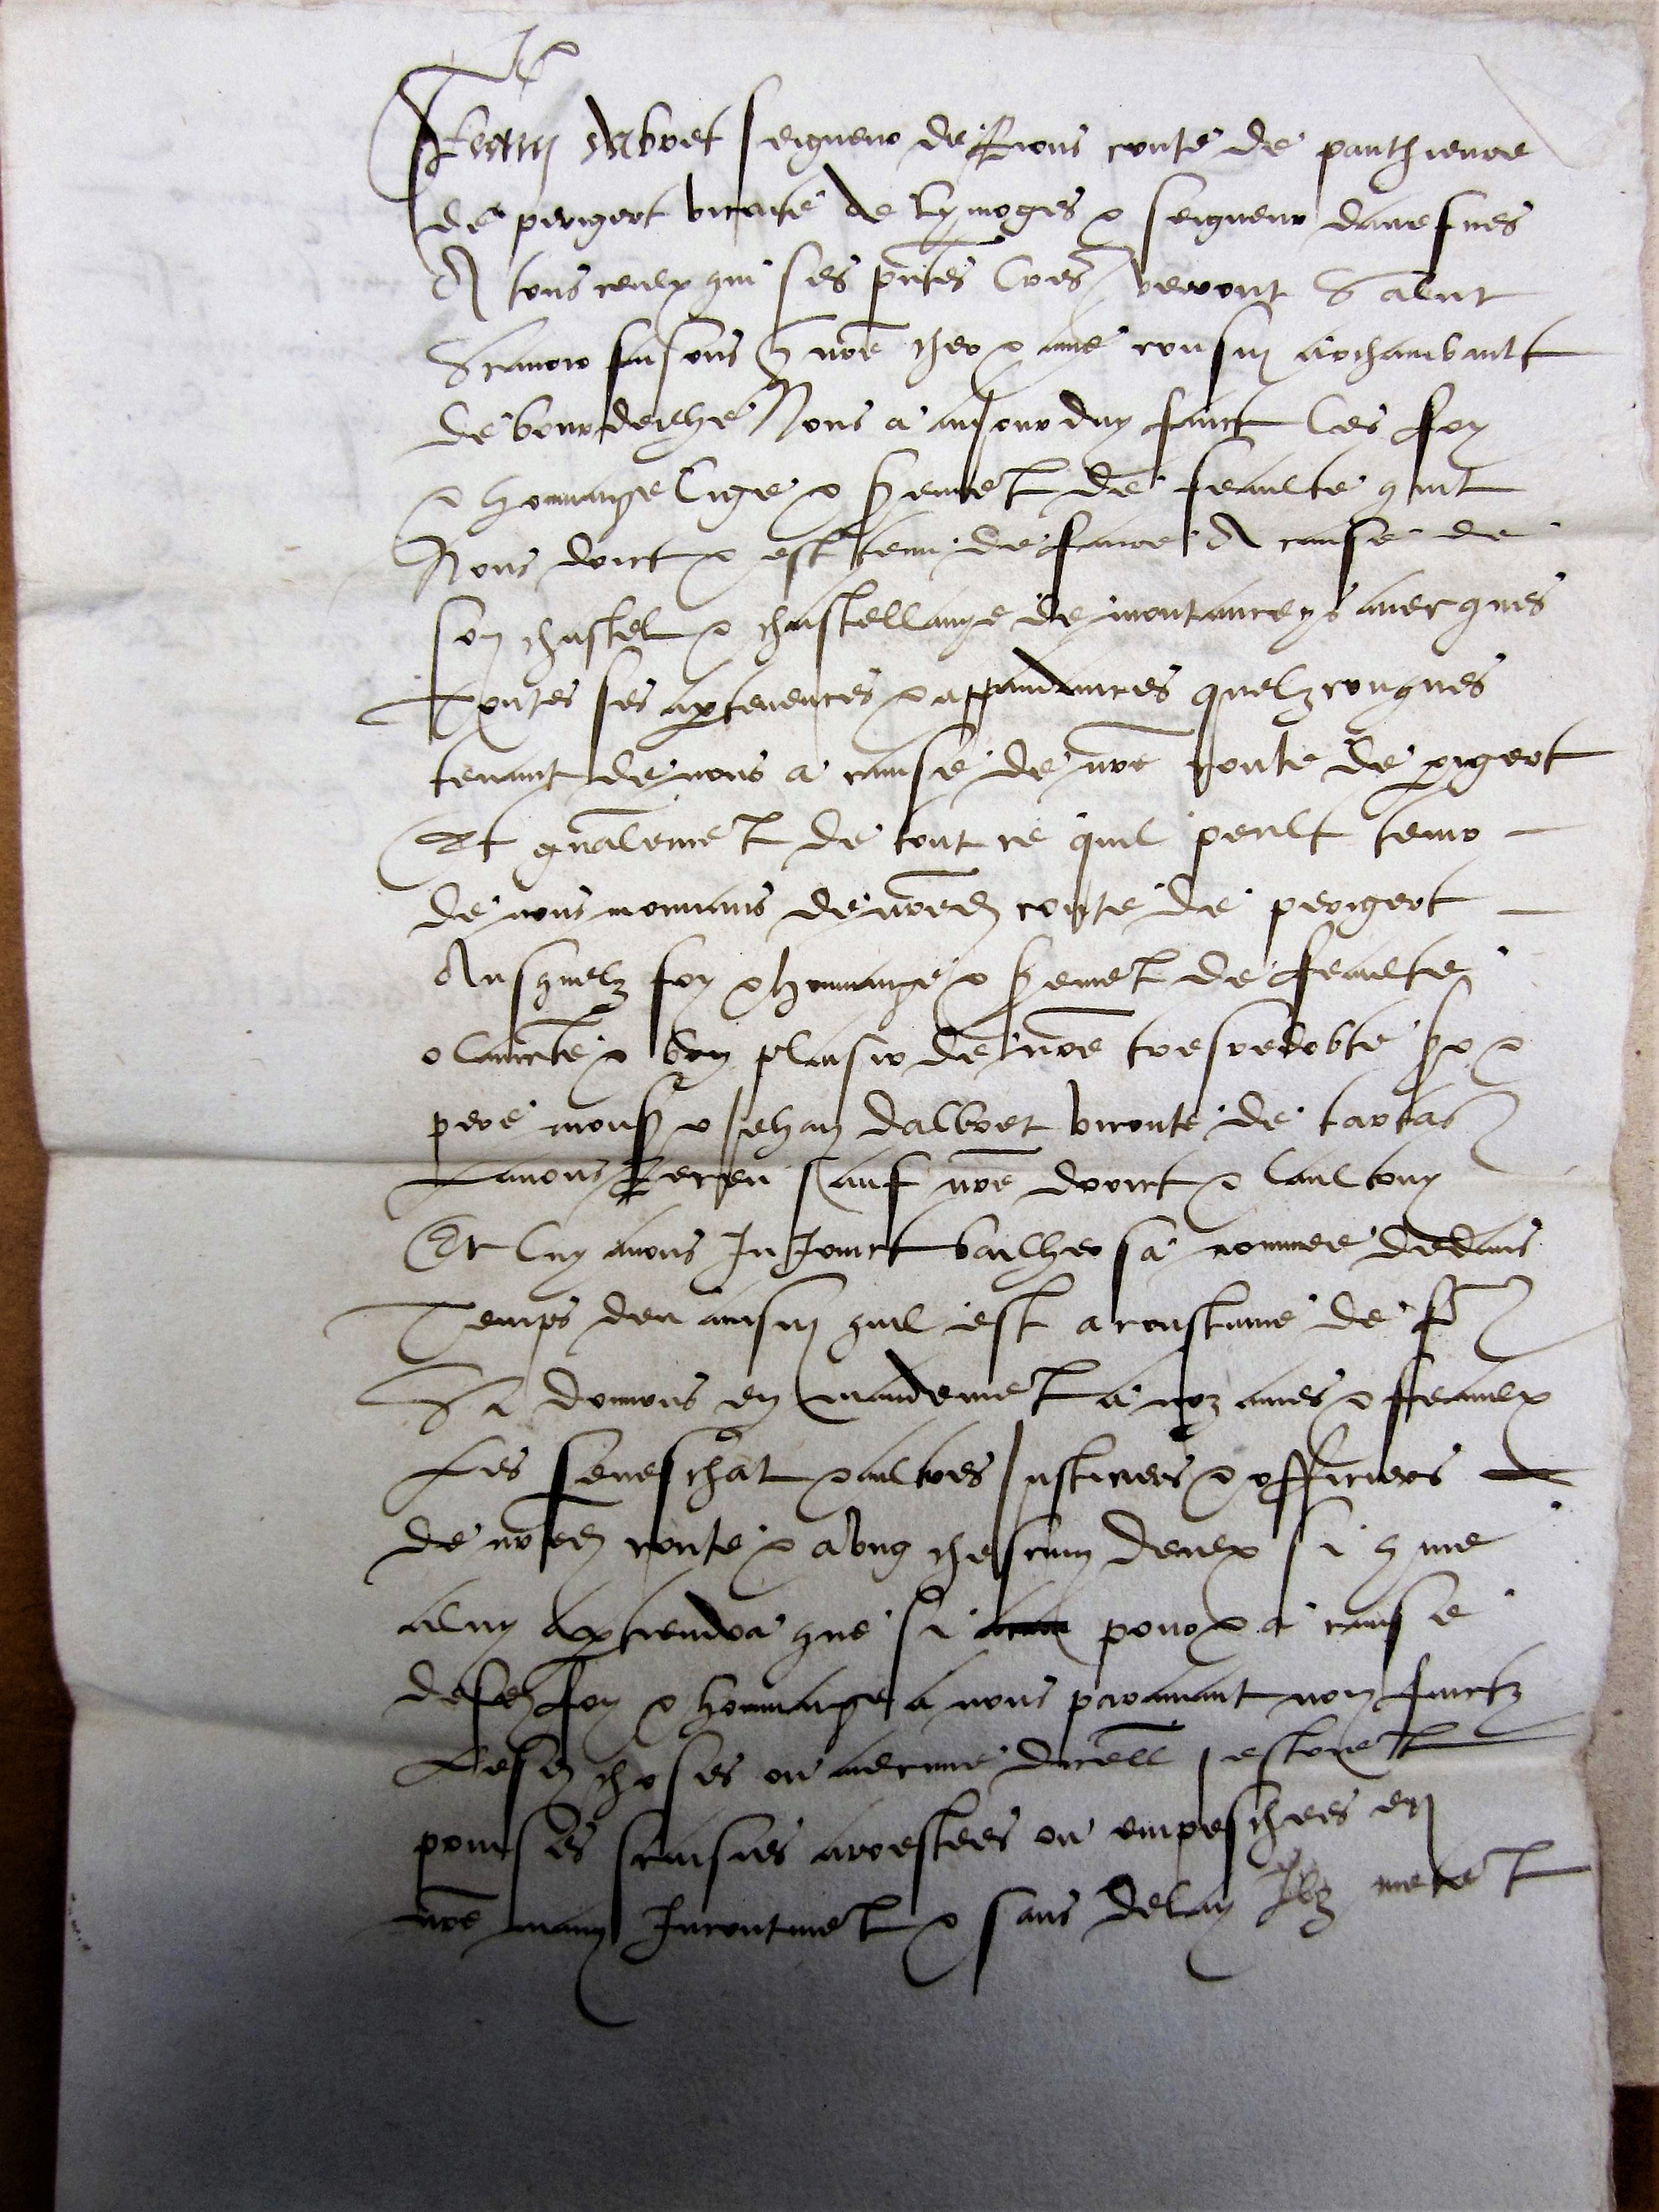 Alain Albret seigneur de Rions conte de panthievre
de perigort viconte de lymoges & seigneur davesnes
A tous ceulx qui ses pntes lres verront Salut
Scavoir faisons q nre cher & ame cousin archambault
de bourdeilhe Nous a aujourduy faict les foy
& hommaige lige & seremet de feaulte quil
Nous doict & est tenu de faire A cause de
son chastel & chastellanye de montanceys avecques
Toutes ses aptenences & appandances quelzconques
tenant de nous a cause de nre conte de perigort
Et gnalemet de tout ce quil peult tenir
de nous mouvans de nred conte de perigort
Ausquelz foy & hommaige & seremet de feaulte
o laucte & bon plaisir de nre tresredobte sr &
pere monsr Jehan dalbret viconte de tartas
Lavons Receu sauf nre droict & laultruy
Et luy avons InJoinct bailher sa nommee dedans
Temps deu ainsin quil est acoustume de fe
Si donnons en mandemet a noz ames & feaulx
Les seneschat & aultres Justiciers & officiers
de nred conte & a ung chescung deulx si q me
a luy aptiendra que si pour & a cause
desd foy & hommaige a nous paravant non faictz
Lesd choses ou aecune dicell estoiet
prinses saisies arrestees ou empeschees en
nre main Incontinet & sans delay Ilz metet